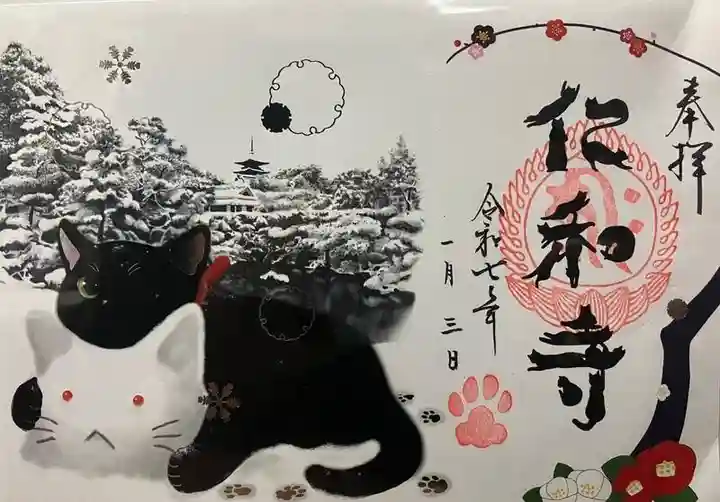 奉拝
仁和寺
令和七年
一月三日